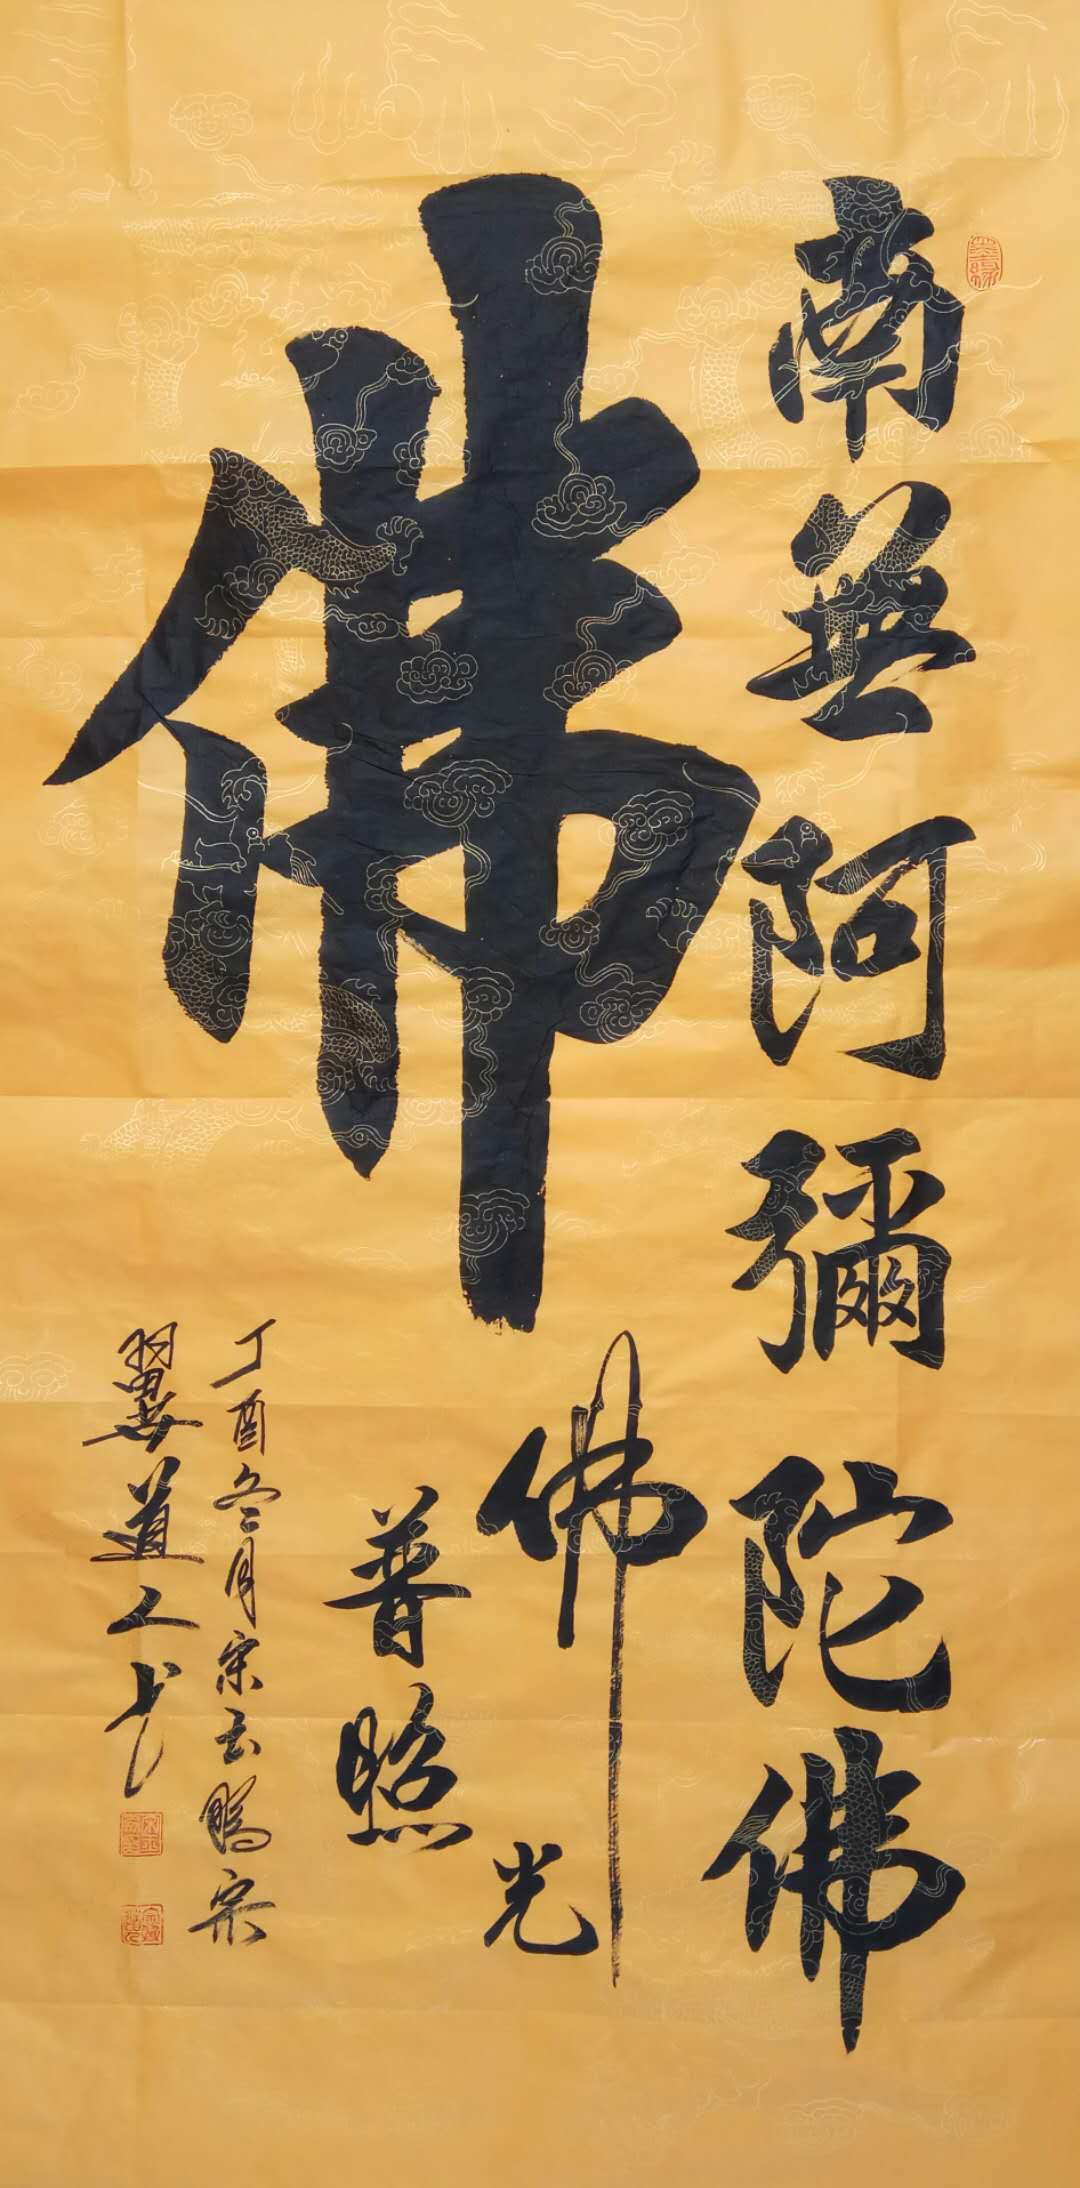 南無阿彌陀佛
佛
佛光
普照
丁酉冬月宋玉鵬宗
翼道人書